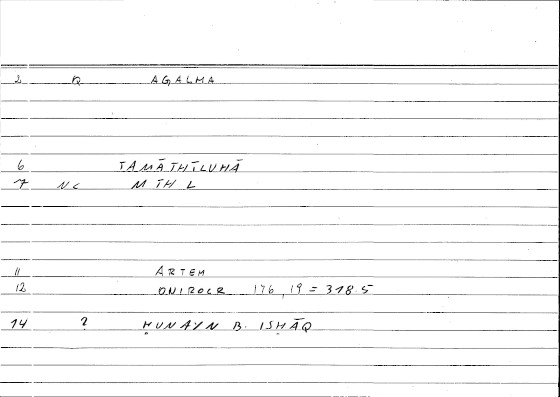 2 R AGALMA
6 TAMĀTHĪLUHĀ
7 NC M TH L
11 ARTEM
12 ONIROCR 176,19 = 318.5
14 ? ḤUNAYN B. ISḤĀQ